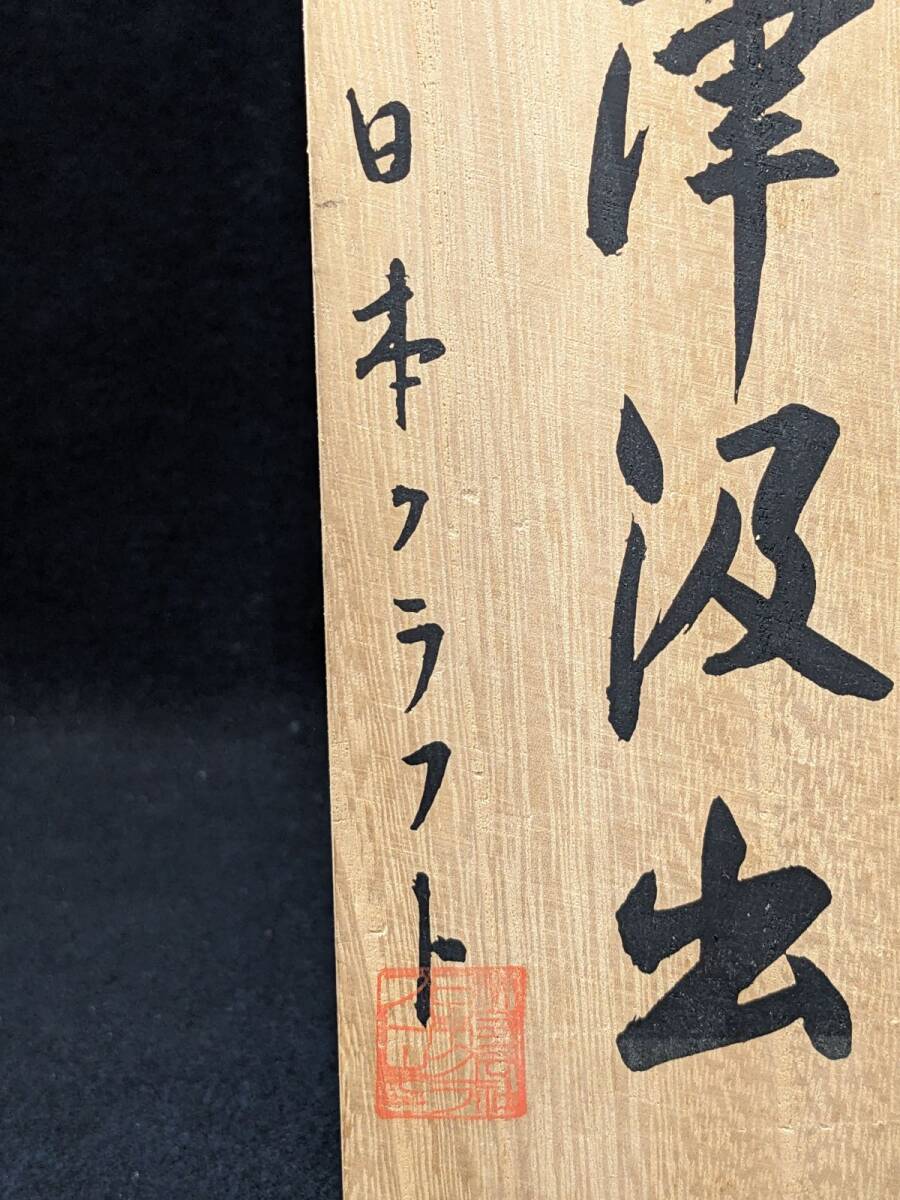 津汲出
日本クラフト